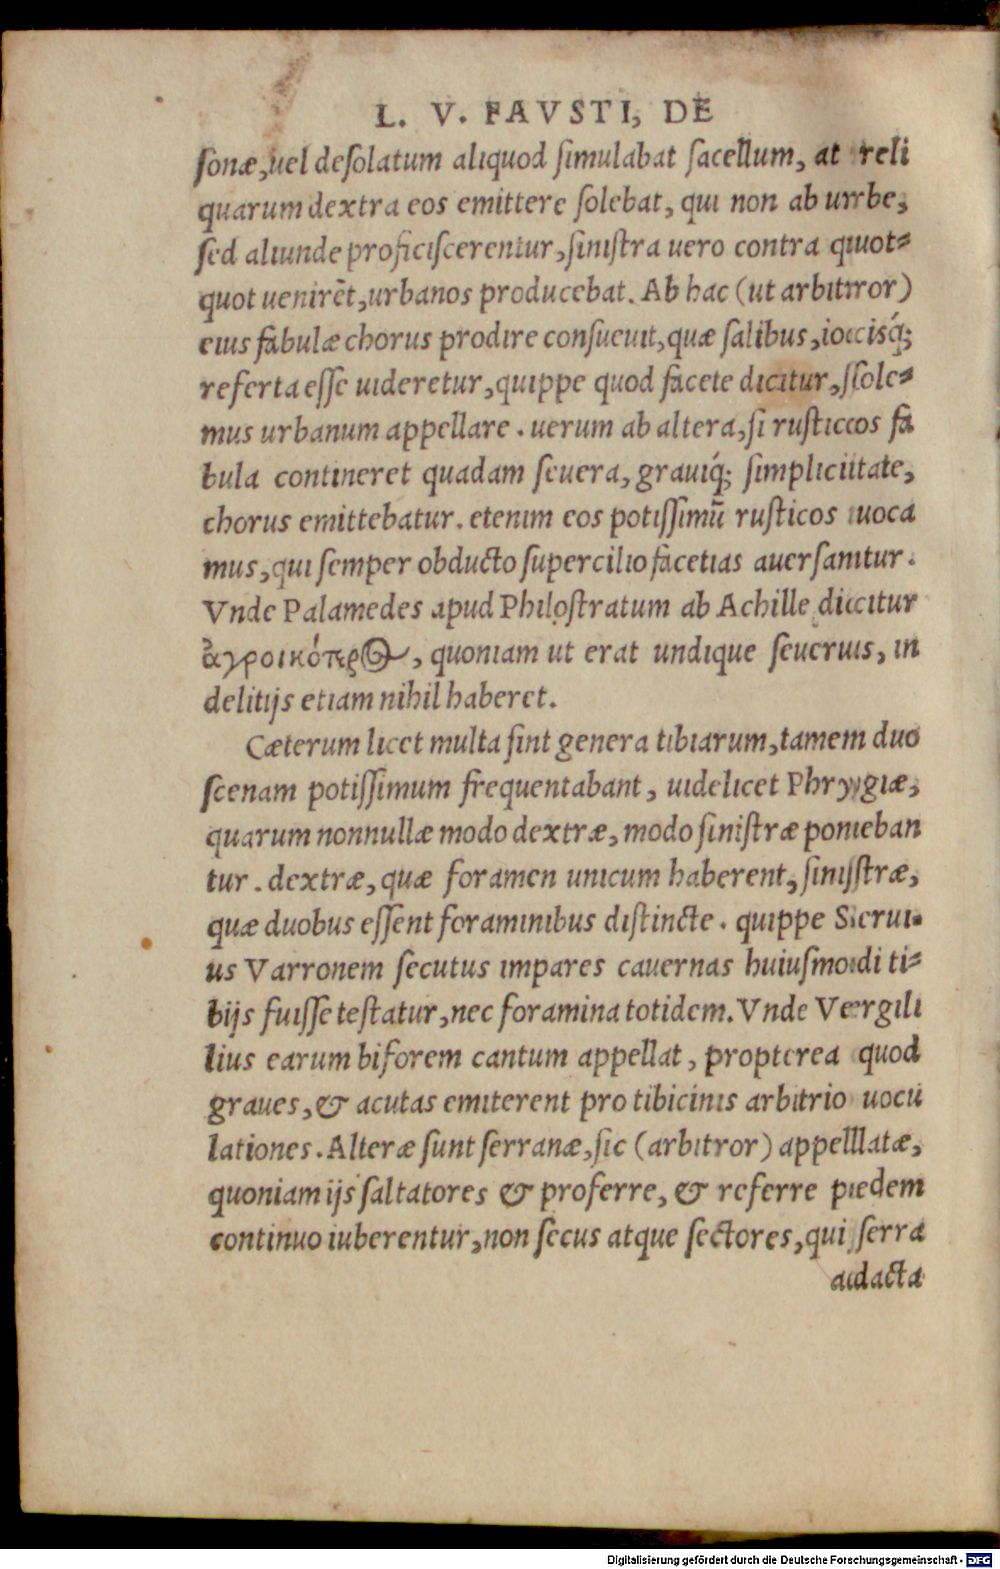 L. V. FAVSTI, DE
ſonæ, uel deſolatum aliquod ſimulabat ſacellum, at reli
quarum dextra eos emittere ſolebat, qui non ab urbe,
ſed aliunde proficiſcerentur, ſiniſtra uero contra quot-
quot uenirēt, urbanos producebat. Ab hac (ut arbitror)
eius fabulæ chorus prodire conſueuit, quæ ſalibus, iociſq́;
referta eſſe uideretur, quippe quod facete dicitur, ſole-
mus urbanum appellare. uerum ab altera, ſi ruſticos fa
bula contineret quadam ſeuera, grauiq́; ſimplicitate,
chorus emittebatur. etenim eos potiſſimū ruſticos uoca
mus, qui ſemper obducto ſupercilio facetias auerſantur.
Vnde Palamedes apud Philoſtratum ab Achille dicitur
ἀγροικότερος, quoniam ut erat undique ſeuerus, in
delitijs etiam nihil haberet.
Cæterum licet multa ſint genera tibiarum, tamem duo
ſcenam potiſſimum frequentabant, uidelicet Phrygiæ,
quarum nonnullæ modo dextræ, modo ſiniſtræ poneban
tur. dextræ, quæ foramen unicum haberent, ſiniſtræ,
quæ duobus eſſent foraminibus diſtincte. quippe Serui-
us Varronem ſecutus impares cauernas huiuſmodi ti-
bijs fuiſſe teſtatur, nec foramina totidem. Vnde Vergili
lius earum biforem cantum appellat, propterea quod
graues, & acutas emiterent pro tibicinis arbitrio uocu
lationes. Alteræ ſunt ſerranæ, ſic (arbitror) appellatæ,
quoniam ijs ſaltatores & proferre, & referre pedem
continuo iuberentur, non ſecus atque ſectores, qui ſerra
adacta
Digitalisierung gefördert durch die Deutsche Forschungsgemeinschaft - DFG